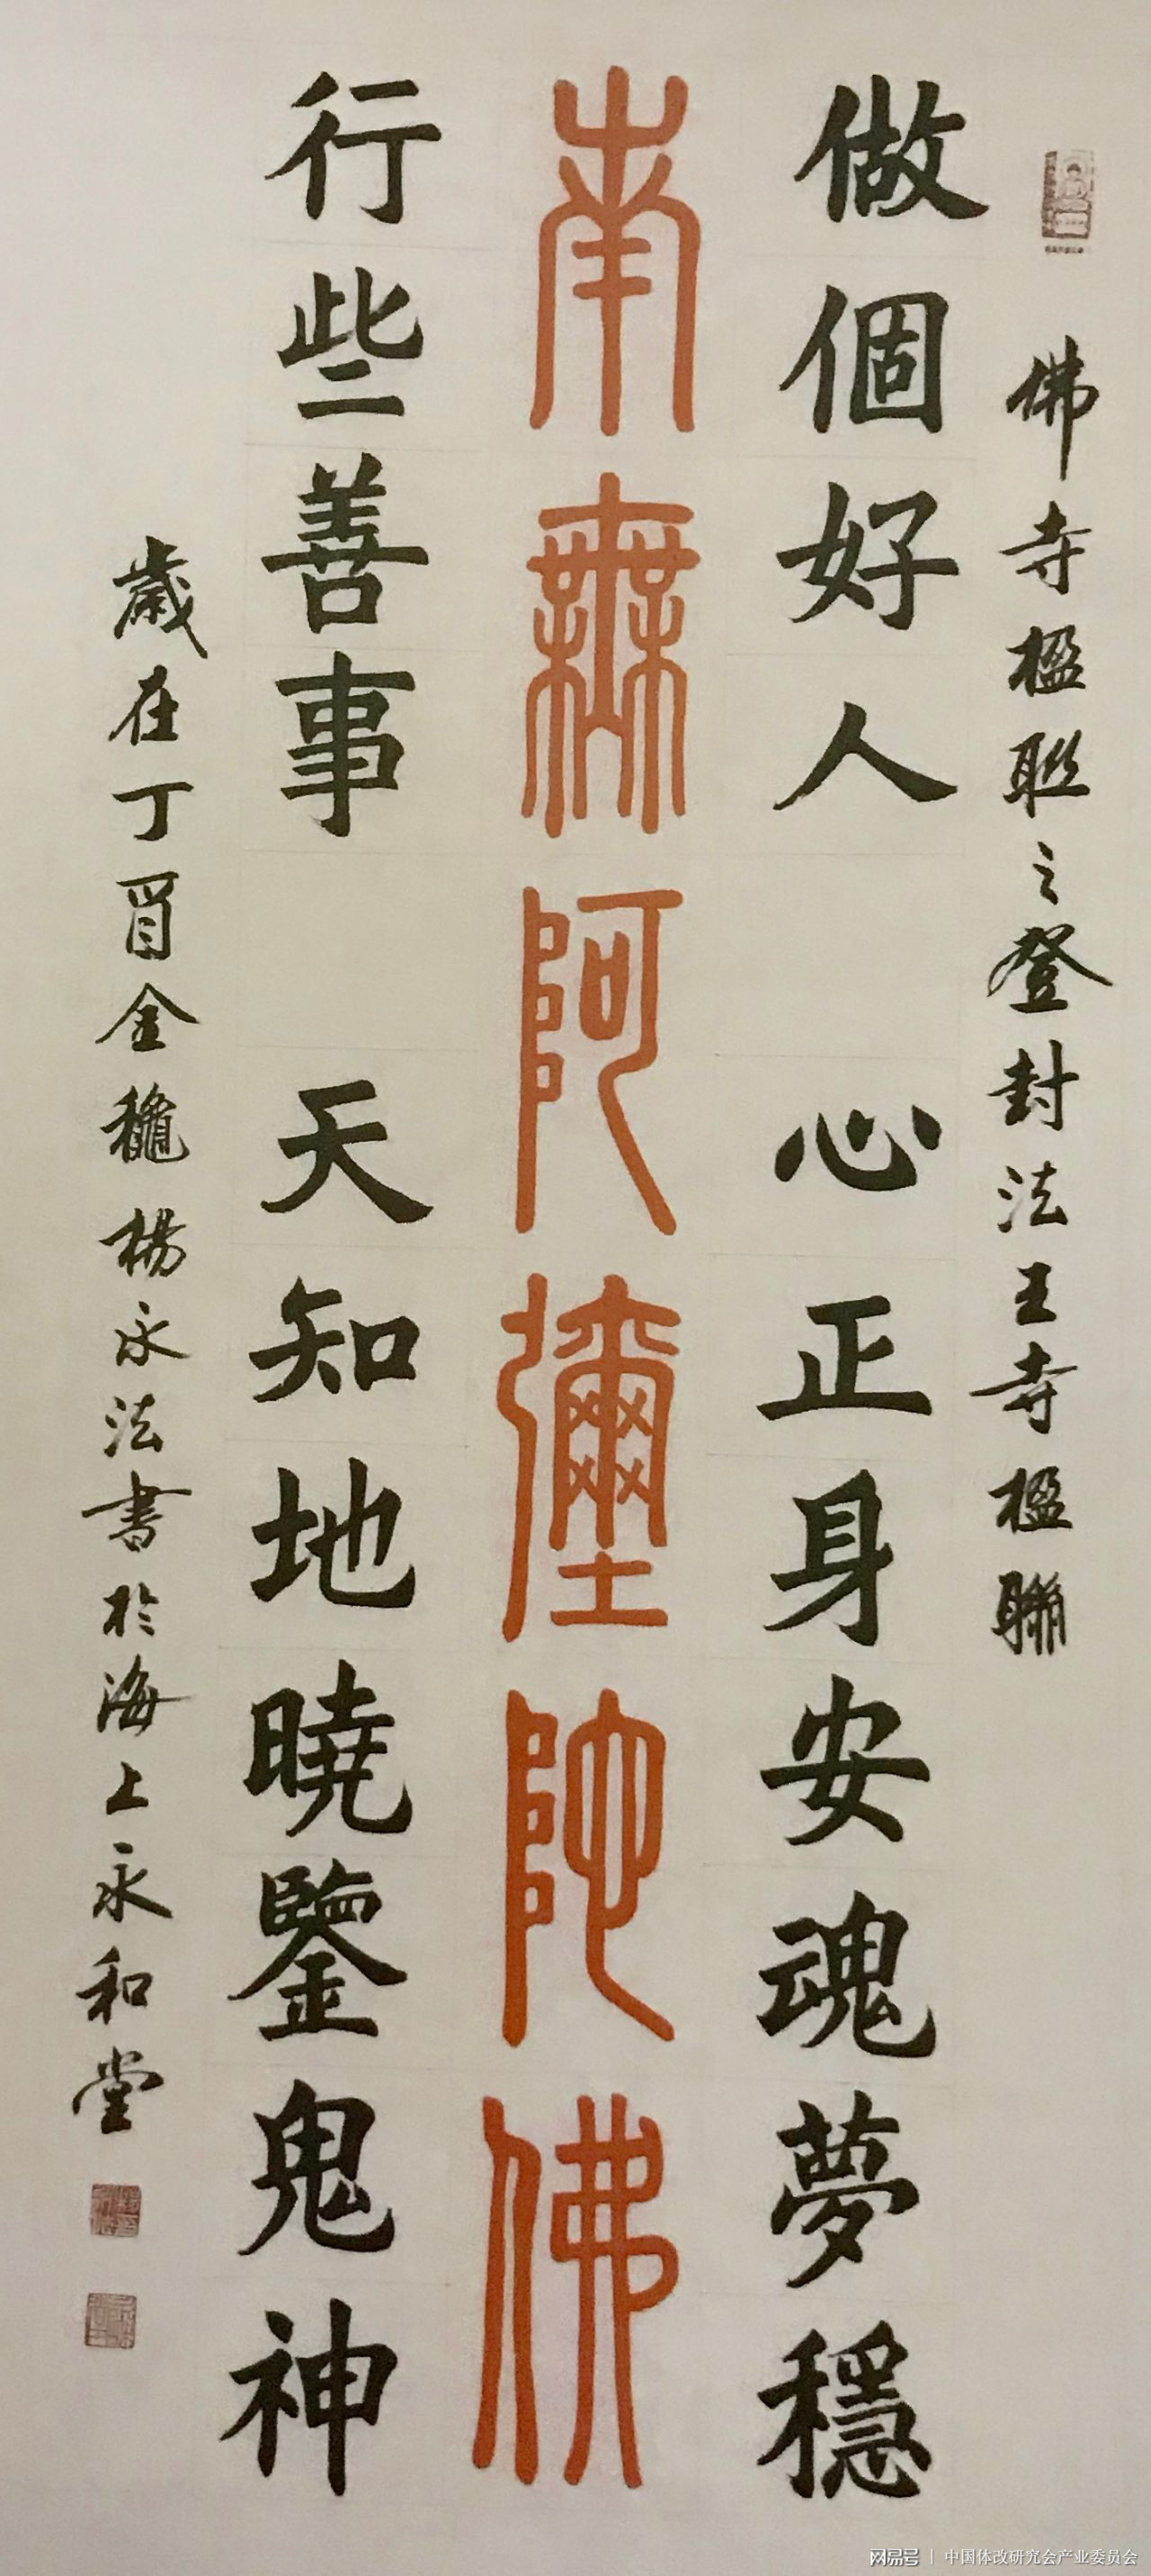 佛寺楹联之登封法王寺楹聯
做個好人 心正身安魂夢穩
南無阿彌陀佛
行些善事 天知地曉鑒鬼神
歲在丁酉金龝楊永法書於海上永和堂
网易号 | 中国体改研究会产业委员会